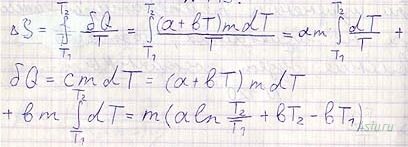 ΔS = ∫_{T₁}^{T₂} δQ/T = ∫_{T₁}^{T₂} (a+bT)mdT/T = am ∫_{T₁}^{T₂} dT/T +
δQ = cmdT = (a+bT)mdT
+ bm ∫_{T₁}^{T₂} dT = m(aln T₂/T₁ + bT₂ - bT₁)